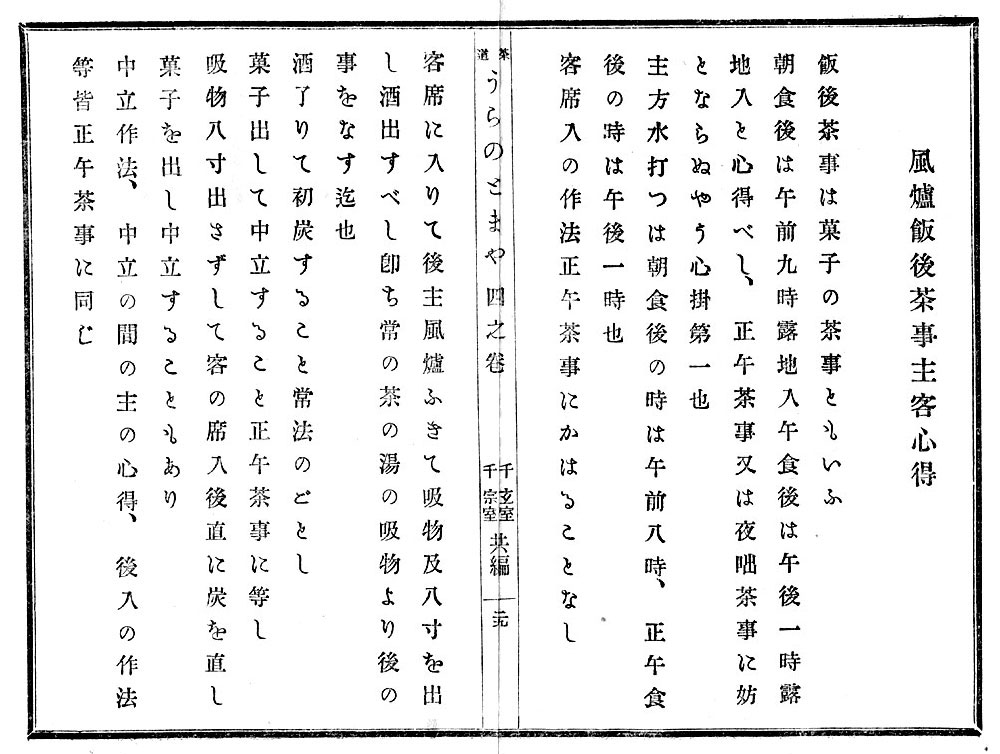 風爐飯後茶事主客心得
飯後茶事は菓子の茶事ともいふ
朝食後は午前九時露地入午食後は午後一時露
地入と心得べし、正午茶事又は夜咄茶事に妨
とならぬやう心掛第一也
主方水打つは朝食後の時は午前八時、正午食
後の時は午後一時也
客席入の作法正午茶事にかはることなし
茶道 うらのとまや 四之卷 千玄室 千宗室 共編 二九
客席に入りて後主風爐ふきて吸物及八寸を出
し酒出すべし卽ち常の茶の湯の吸物より後の
事をなす迄也
酒了りて初炭すること常法のごとし
菓子出して中立すること正午茶事に等し
吸物八寸出さずして客の席入後直に炭を直し
菓子を出し中立することもあり
中立作法、中立の間の主の心得、後入の作法
等皆正午茶事に同じ